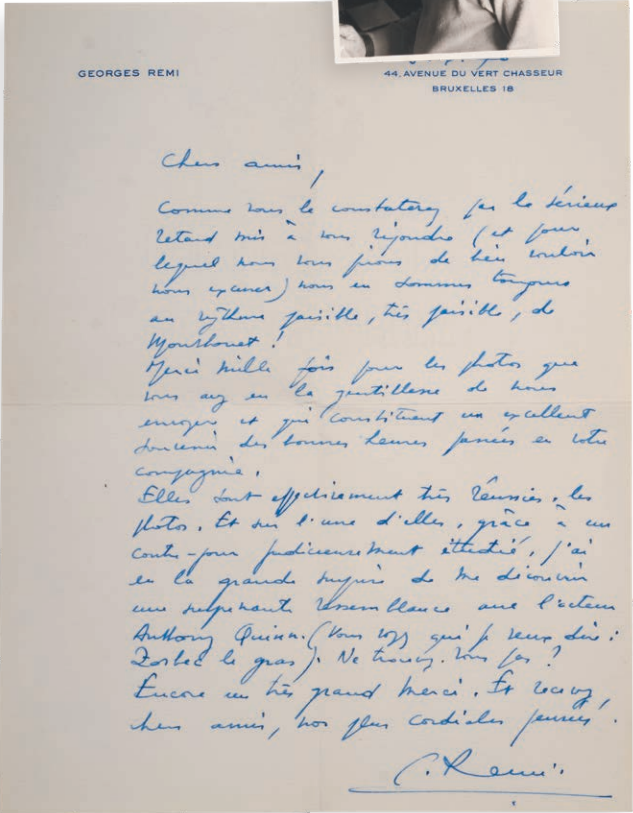 GEORGES REMI
44, AVENUE DU VERT CHASSEUR
BRUXELLES 18
Chers amis,
Comme vous le constaterez par le sérieux
retard mis à vous répondre (et pour
lequel nous vous prions de bien vouloir
nous excuser) nous en sommes toujours
au rythme paisible, très paisible, de
!
Merci mille fois pour les photos que
vous avez eu la gentillesse de nous
envoyer et qui constituent un excellent
souvenir des bonnes heures passées en votre
compagnie.
Elles sont effectivement très réussies, les
photos. Et sur l'une d'elles, grâce à un
contre-jour judicieusement étudié, j'ai
eu la grande surprise de me découvrir
une surprenante ressemblance avec l'acteur
Anthony Quinn. (Vous voyez qui je veux dire :
Zorbec le gras). Ne trouvez-vous pas ?
Encore un très grand merci. Et recevez,
chers amis, nos plus cordiales pensées.
G. Remi.